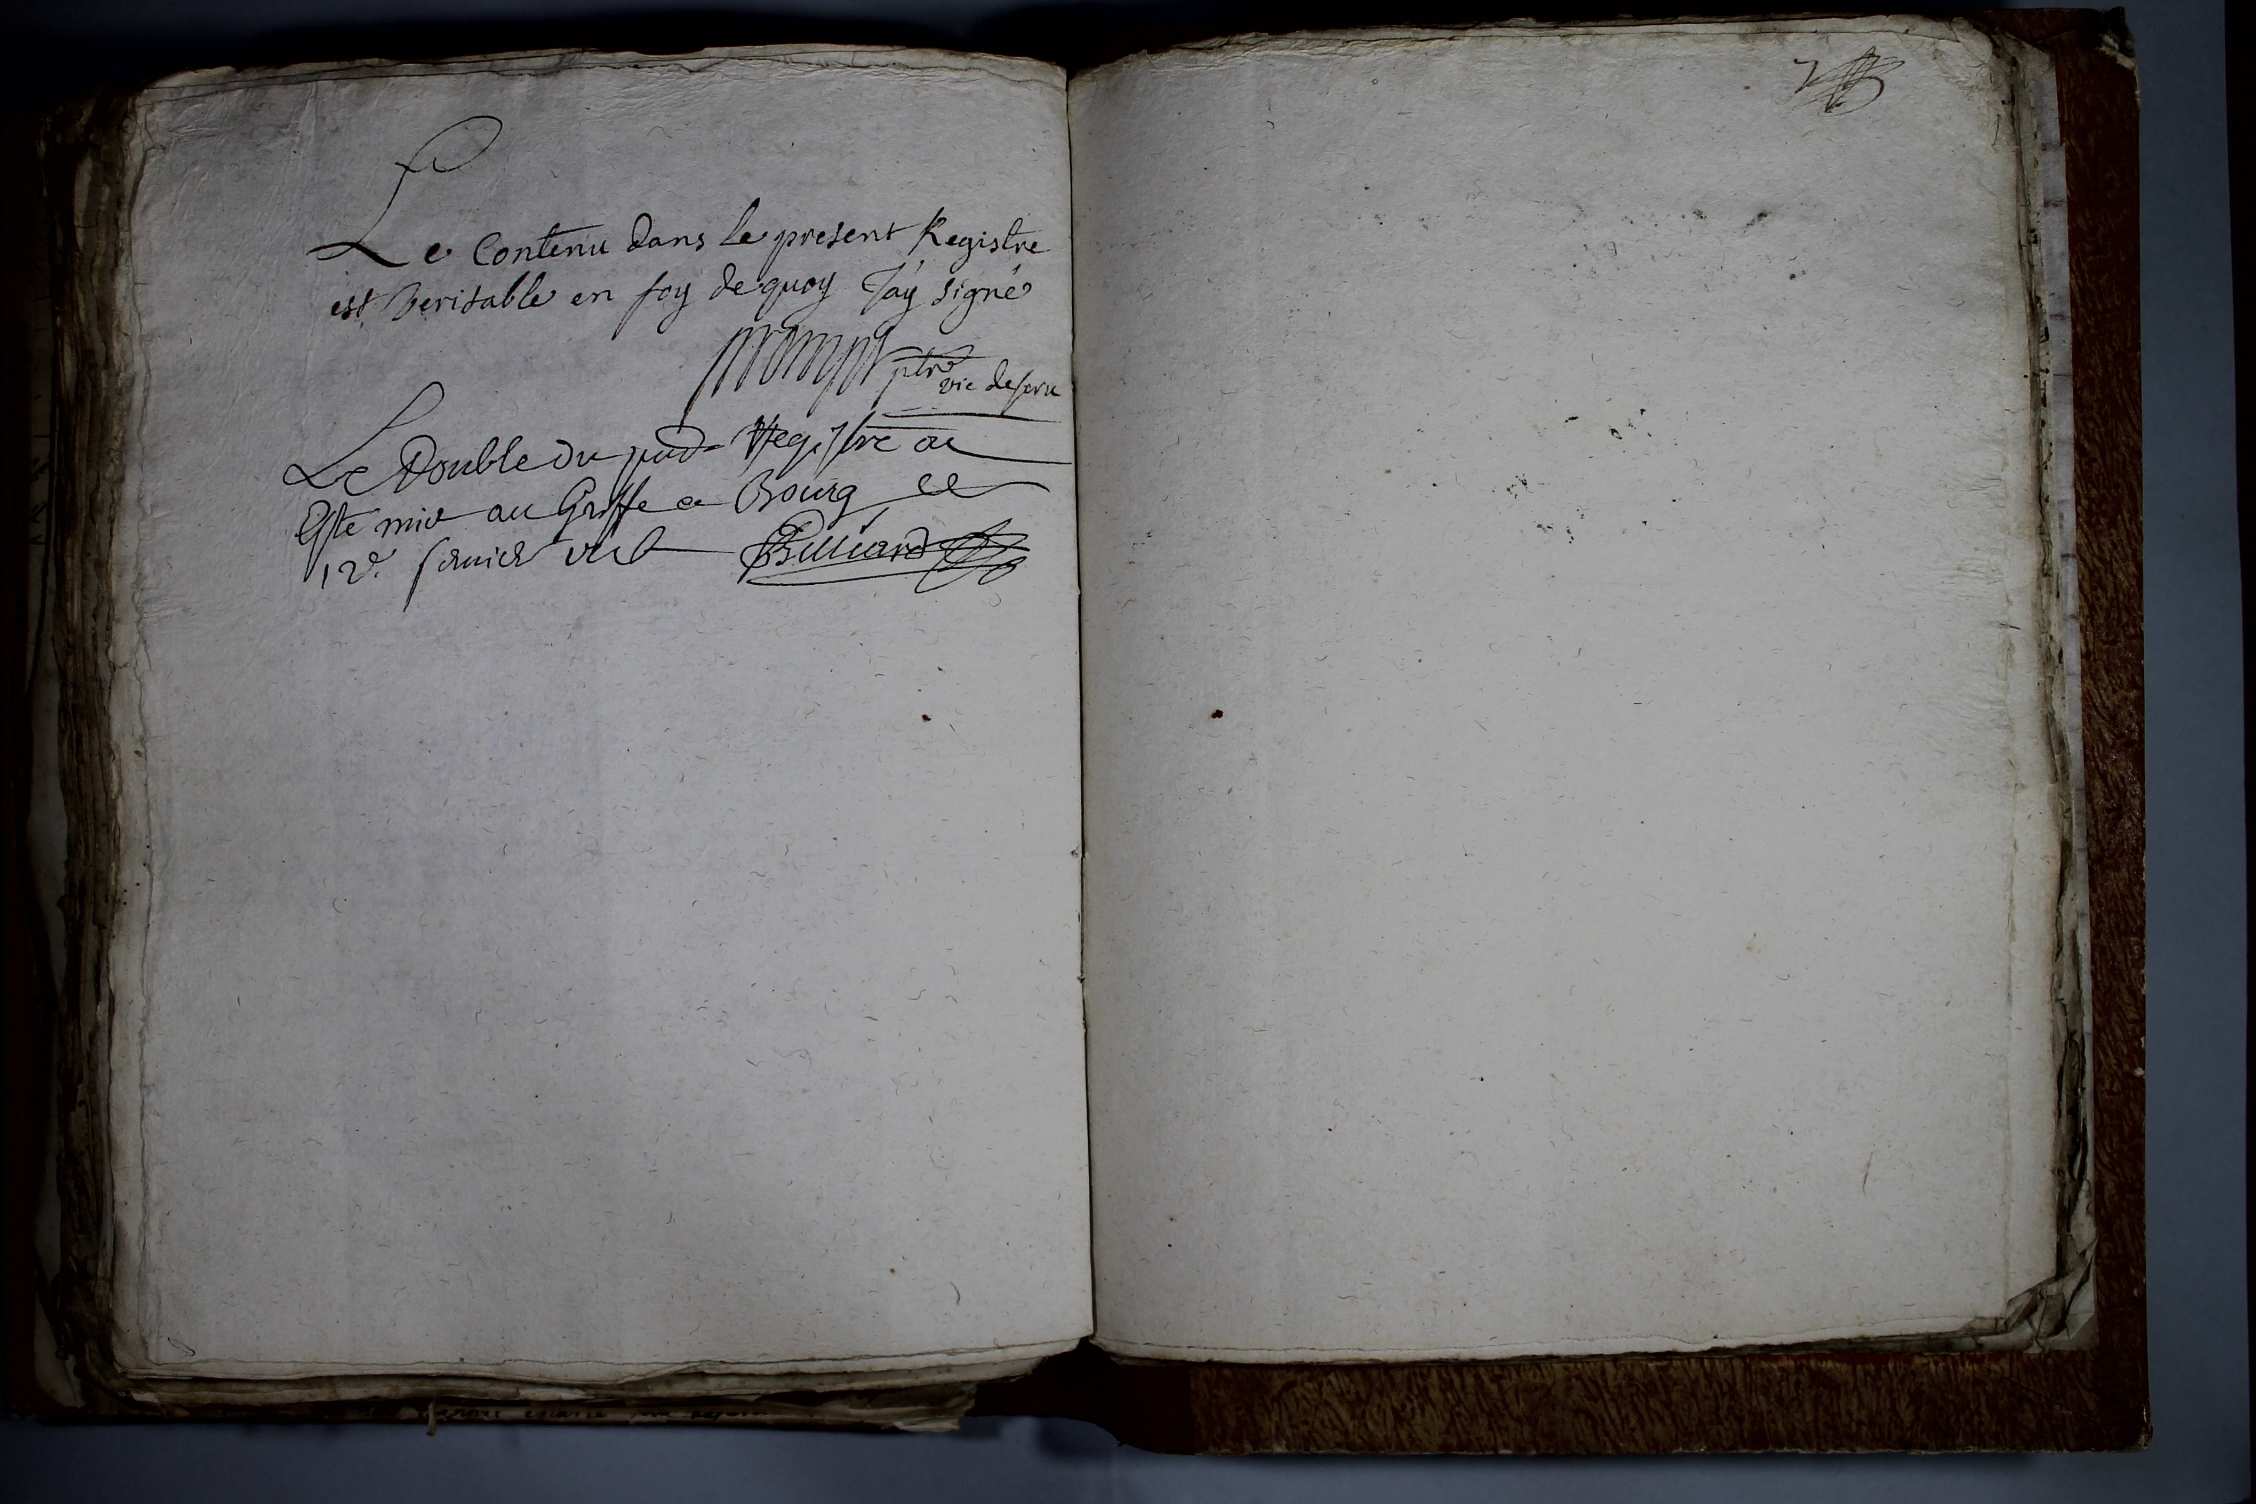 Le Contenu dans le present Registre
est Veritable en foy de quoy J'ay signé
prompt ptre
vic desserv
Le Double du pnt Registre a
Esté mis au Greffe a Bourg le
12e. fevrier
Billiard
7